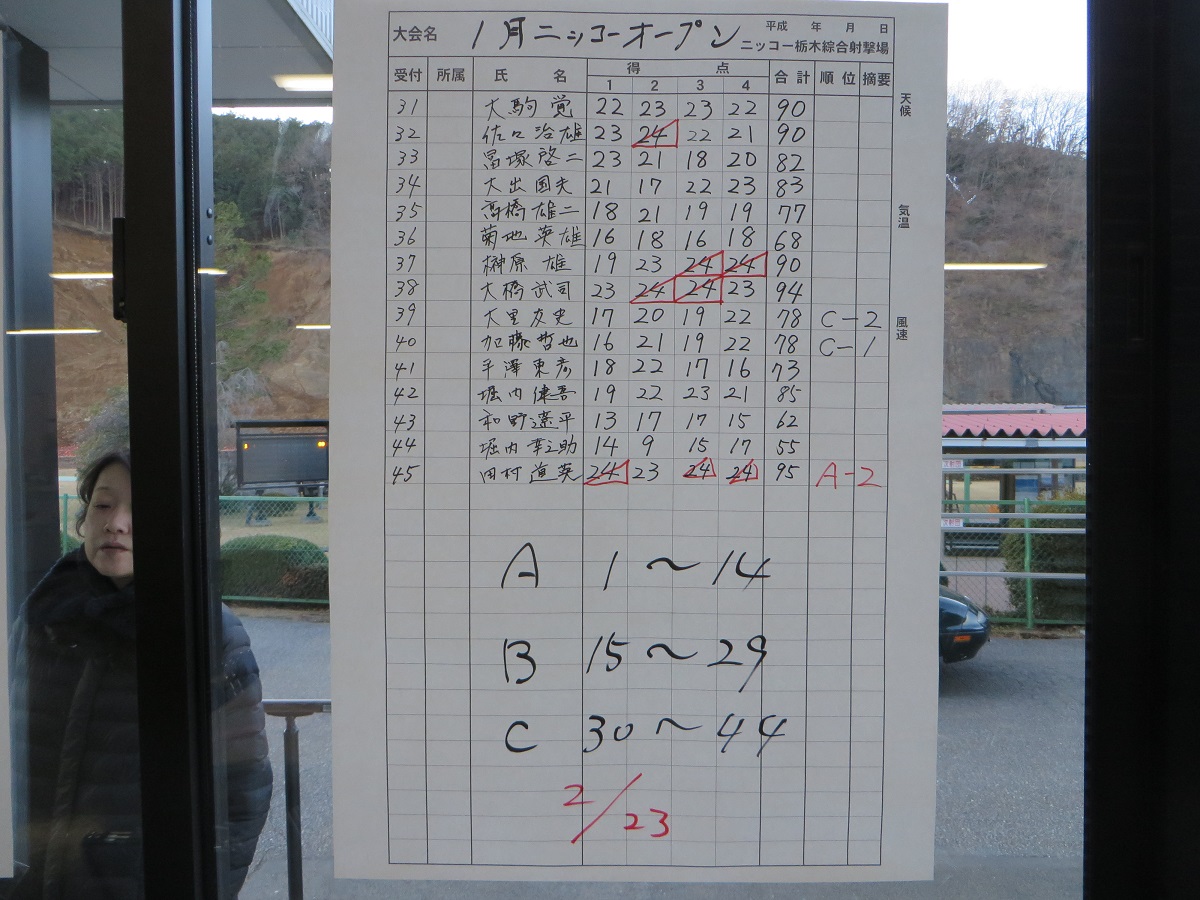 大会名 1月ニッコーオープン 平成 年 月 日
ニッコー栃木綜合射撃場
受付 所属 氏 名 得 点 合計 順位 摘要
1 2 3 4
31 大駒 覚 22 23 23 22 90
32 佐口治雄 23 24 22 21 90
33 冨塚啓二 23 21 18 20 82
34 大出国夫 21 17 22 23 83
35 高橋雄二 18 21 19 19 77
36 菊地英雄 16 18 16 18 68
37 榊原 雄 19 23 24 24 90
38 大橋武司 23 24 24 23 94
39 大里友史 17 20 19 22 78 C-2
40 加藤哲也 16 21 19 22 78 C-1
41 平澤東彦 18 22 17 16 73
42 堀内健吾 19 22 23 21 85
43 和野憲平 13 17 17 15 62
44 堀内幸之助 14 9 15 17 55
45 田村直英 24 23 24 24 95 A-2
天候
気温
風速
A 1~14
B 15~29
C 30~44
2/23